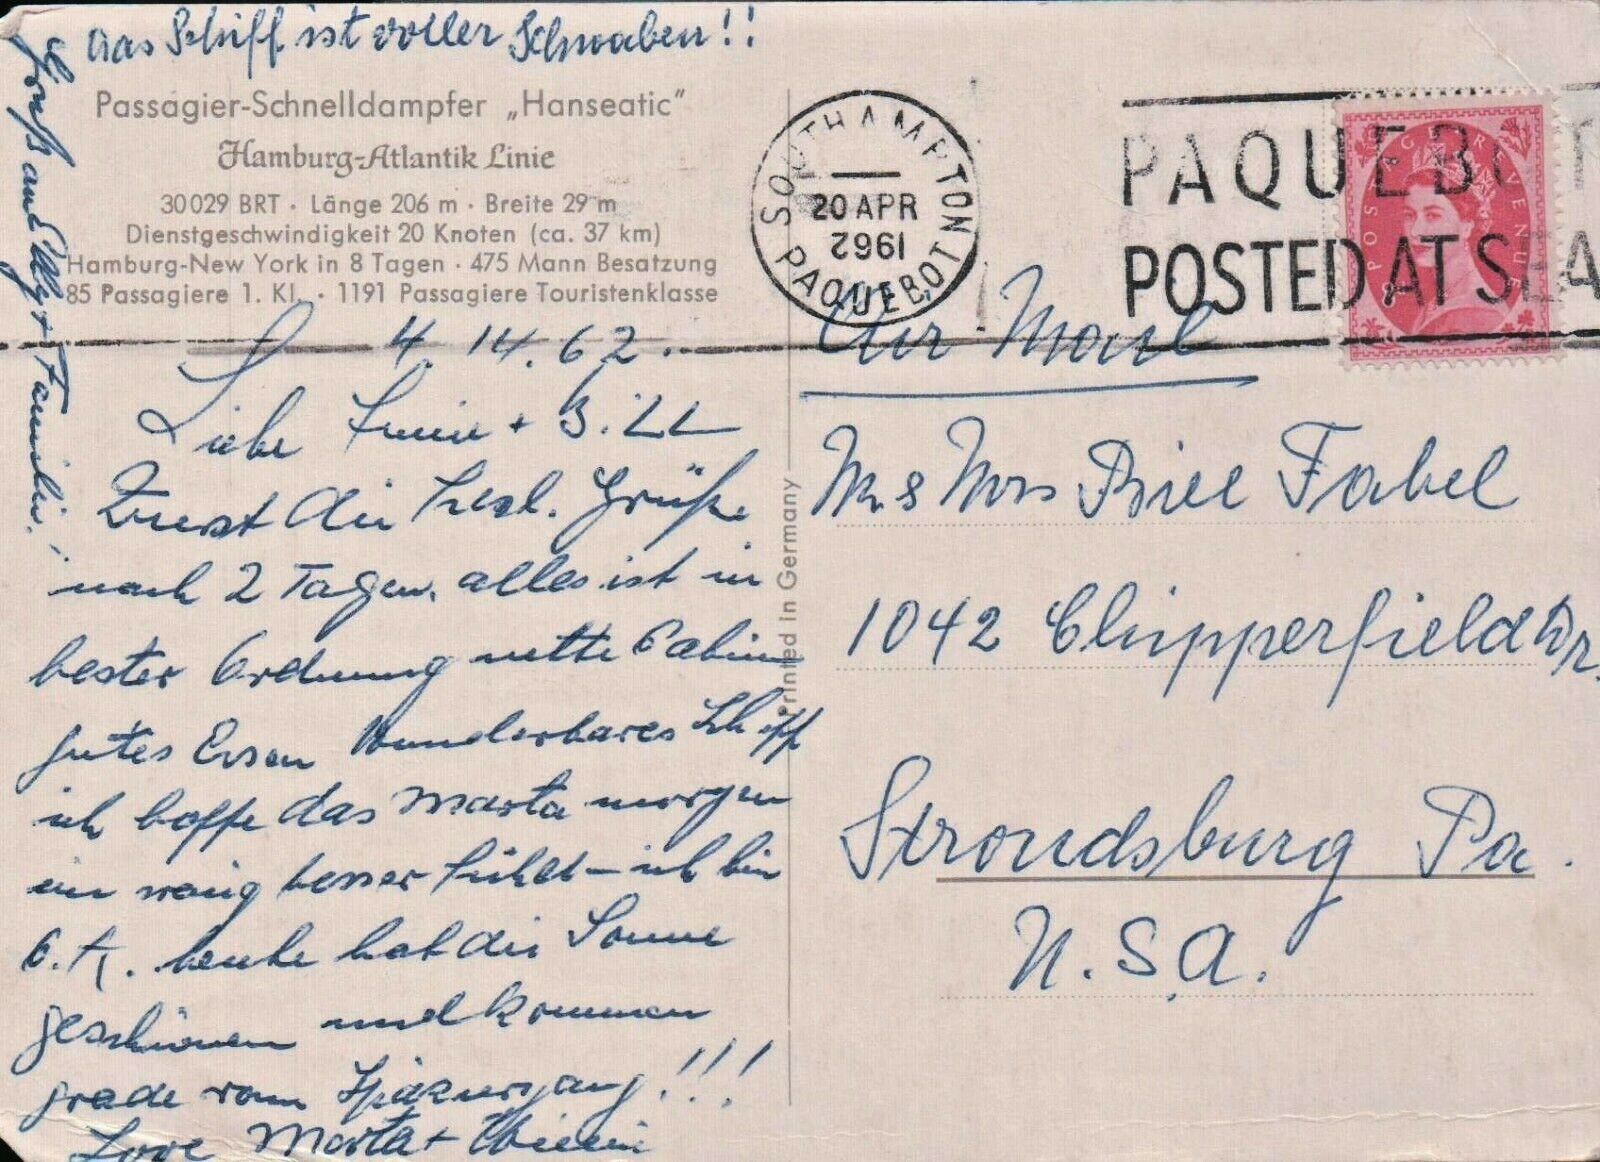 das Schiff ist voller Schwaben!!
Gruß and Olly + Familie.
Passagier-Schnelldampfer „Hanseatic"
Hamburg-Atlantik Linie
30029 BRT · Länge 206 m · Breite 29 m
Dienstgeschwindigkeit 20 Knoten (ca. 37 km)
Hamburg-New York in 8 Tagen · 475 Mann Besatzung
85 Passagiere 1. Kl. · 1191 Passagiere Touristenklasse
4. 14. 62.
Liebe + Bill
Zuerst die herzl. Grüße
nach 2 Tagen. alles ist in
bester Ordnung nette Cabine
gutes Essen Wunderbares Schiff
ich hoffe das Marta morgen
ein wenig besser fühlt – ich bin
O.K. heute hat die Sonne
geschienen und kommen
grade vom Spaziergang!!!
Love Marta +
Printed in Germany
SOUTHAMPTON
20 APR
1962
PAQUEBOT
PAQUEBOT
POSTED AT SEA
POSTAGE REVENUE
Air Mail
Mr & Mrs Bill Fabel
1042 Chipperfield Dr.
Stroudsburg Pa.
U.S.A.